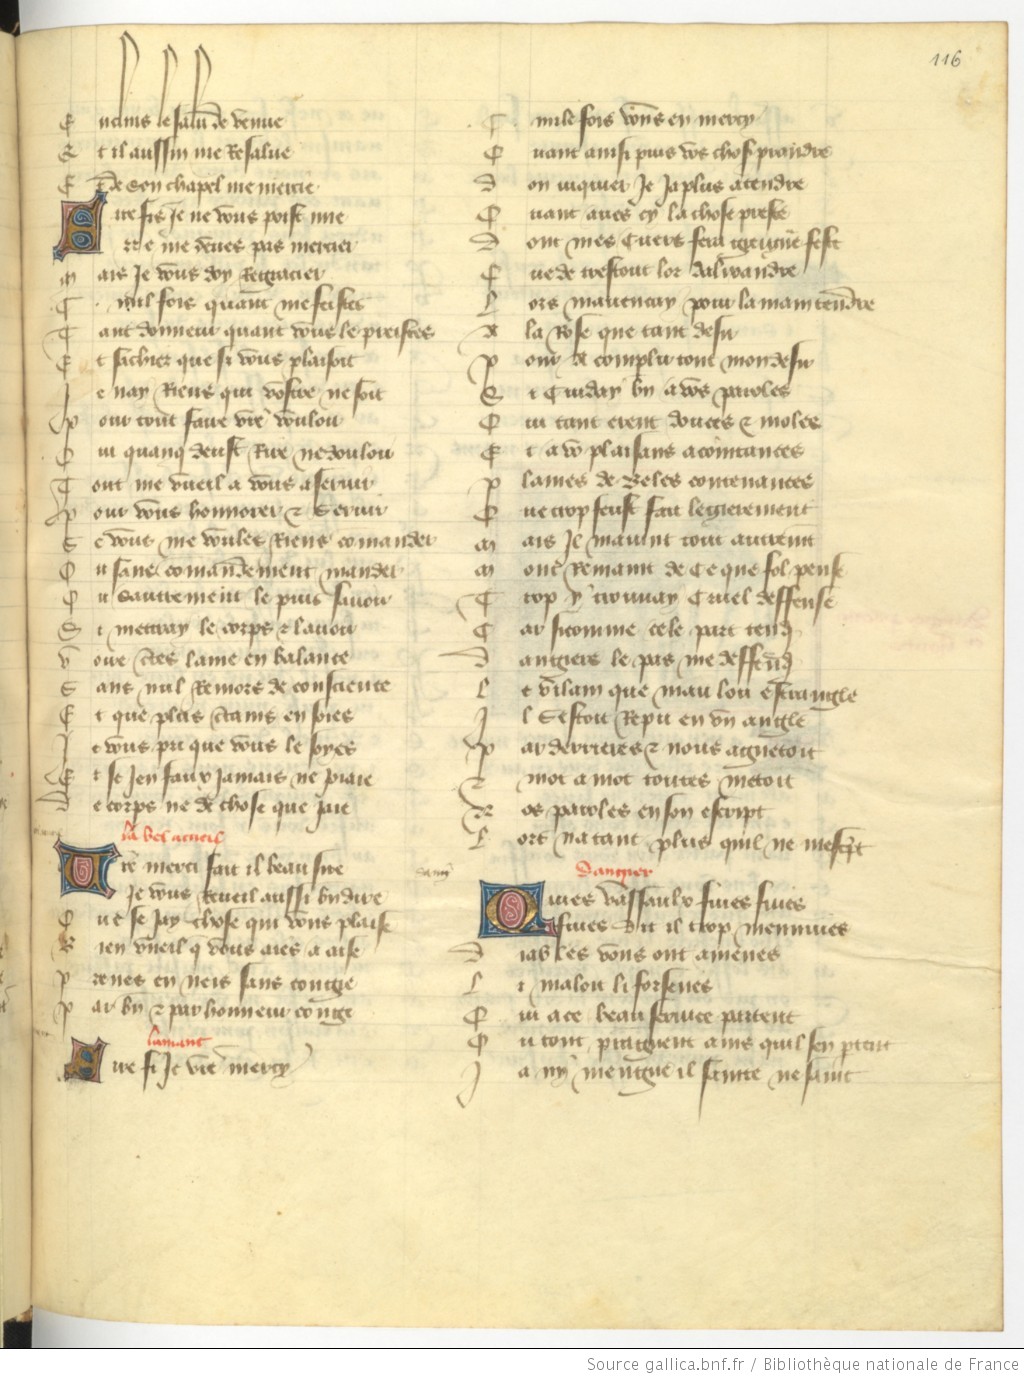 116
E nclins le salu de venue
E t il aussin me Resalue
E t de son chapel me mercie
Sire fis je ne vous poist mie
Ne me deves pas mercier
M ais Je vous doy Regracier
C mil fois quant me feistes
T ant donneur quant vous le preistes
E t sachiez que si vous plaisoit
J e nay Riens qui vostre ne soit
P our tout faire vre voulou
Q ui quanq deust Rire ne doulou
T out me vueil a vous aservir
P our vous honnorer & servir
S e vous me voules Riens comander
O u sans comandement mander
O u sautrement le puis savoir
Si mettray le corps & lavoir
V oire certes lame en balance
S ans nul Remors de conscience
E t que plus certains en soies
J e vous pri que vous le soyes
E t se jen faux jamais ne joie
De corps ne de chose que jaie
la bel acueil
Vre merci fait il beau sire
Je vous Revueil aussi by dire
Q ue se jay chose qui vous plaise
B ien vueil q vous aies a aise
P renes en neis sans congie
P ar by & par honneur congi
lamant
Sire si Je vre mercy
C mile fois vous en mercy
Q uant ainsi puis vos chos prandre
D on nquier Je ja plus atendre
Q uant aves cy la chose preste
D ont mes Cuers fera greigne feste
Q ue de trestout lor dalixandre
L ors mavencay pour la main tendre
A la Rose que tant desir
P our acomplir tout mon desir
Et Cuiday by a vos paroles
Q ui tant erent douces & moles
E t a vo plaisans acointances
P laines de beles contenances
Q ue trop feust fait legierement
M ais Il mavint tout autremt
M out Remaint de Ce que fol pense
T rop y trouvay Cruel deffense
C ar sicomme cele part tend
D angiers le pas me deffend
L e vilain que mau lou estrangle
J l Sestoit Repu en un angle
P ar derrieres & nous aguetoit
E mot a mot toutes metoit
N os paroles en son escript
L ors natant plus quil ne mescrpt
dangier
Fuies vassaulx fuies fuies
fuies dit il trop mennuies
D iables vous ont amenes
L i malou li forsenes
Q ui a ce beau service partent
Q u tout praignent ains quil sen ptent
J a ny viengne il saincte ne saint
Source gallica.bnf.fr / Bibliothèque nationale de France